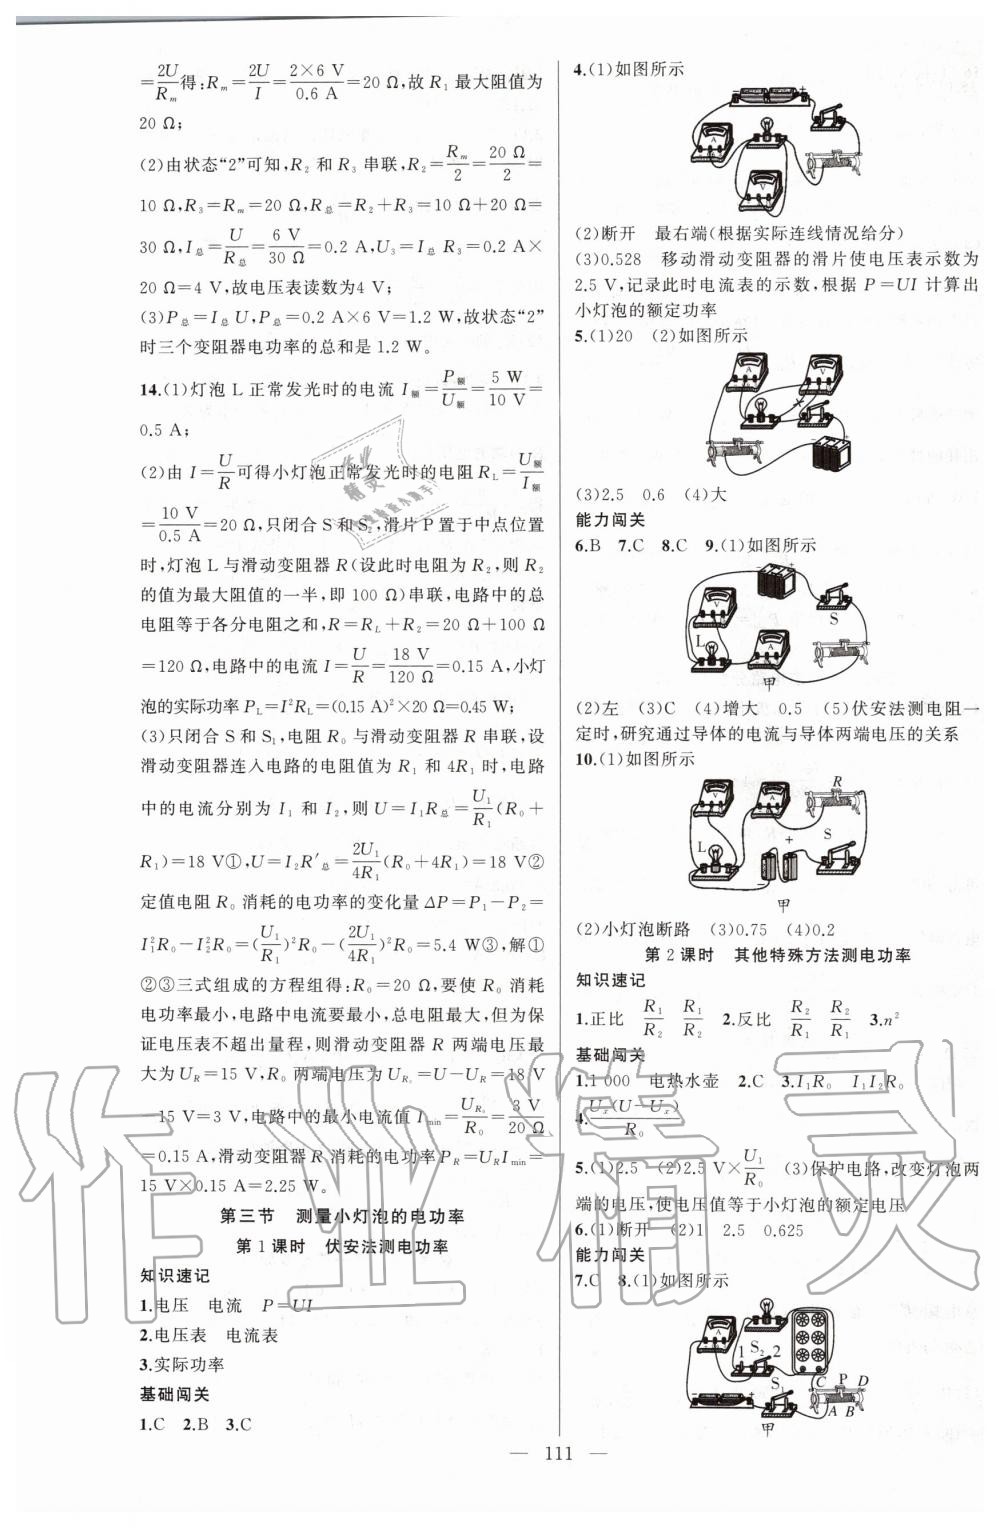 =2U/R_m得:R_m=2U/I=(2×6 V)/(0.6 A)=20 Ω,故R₁最大阻值为
20 Ω;
(2)由状态“2”可知,R₂和R₃串联,R₂=R_m/2=20 Ω/2=
10 Ω,R₃=R_m=20 Ω,R总=R₂+R₃=10 Ω+20 Ω=
30 Ω,I总=U/R总=6 V/30 Ω=0.2 A,U₃=I总R₃=0.2 A×
20 Ω=4 V,故电压表读数为4 V;
(3)P总=I总U,P总=0.2 A×6 V=1.2 W,故状态“2”
时三个变阻器电功率的总和是1.2 W。
14.(1)灯泡L正常发光时的电流I额=P额/U额=5 W/10 V=
0.5 A;
(2)由I=U/R可得小灯泡正常发光时的电阻R_L=U额/I额
=10 V/0.5 A=20 Ω,只闭合S和S₂,滑片P置于中点位置
时,灯泡L与滑动变阻器R(设此时电阻为R₂,则R₂
的值为最大阻值的一半,即100 Ω)串联,电路中的总
电阻等于各分电阻之和,R=R_L+R₂=20 Ω+100 Ω
=120 Ω,电路中的电流I=U/R=18 V/120 Ω=0.15 A,小灯
泡的实际功率P_L=I²R_L=(0.15 A)²×20 Ω=0.45 W;
(3)只闭合S和S₁,电阻R₀与滑动变阻器R串联,设
滑动变阻器连入电路的电阻值为R₁和4R₁时,电路
中的电流分别为I₁和I₂,则U=I₁R总=U₁/R₁(R₀+
R₁)=18 V①,U=I₂R′总=2U₁/4R₁(R₀+4R₁)=18 V②
定值电阻R₀消耗的电功率的变化量ΔP=P₁-P₂=
I₁²R₀-I₂²R₀=(U₁/R₁)²R₀-(2U₁/4R₁)²R₀=5.4 W③,解①
②③三式组成的方程组得:R₀=20 Ω,要使R₀消耗
电功率最小,电路中电流要最小,总电阻最大,但为保
证电压表不超出量程,则滑动变阻器R两端电压最
大为U_R=15 V,R₀两端电压为U_R₀=U-U_R=18 V
-15 V=3 V,电路中的最小电流值I_min=U_R₀/R₀=3 V/20 Ω
=0.15 A,滑动变阻器R消耗的电功率P_R=U_R I_min=
15 V×0.15 A=2.25 W。
第三节 测量小灯泡的电功率
第1课时 伏安法测电功率
知识速记
1.电压 电流 P=UI
2.电压表 电流表
3.实际功率
基础闯关
1.C 2.B 3.C
4.(1)如图所示
A
V
(2)断开 最右端(根据实际连线情况给分)
(3)0.528 移动滑动变阻器的滑片使电压表示数为
2.5 V,记录此时电流表的示数,根据P=UI计算出
小灯泡的额定功率
5.(1)20 (2)如图所示
A V
(3)2.5 0.6 (4)大
能力闯关
6.B 7.C 8.C 9.(1)如图所示
V
S
L
A
甲
(2)左 (3)C (4)增大 0.5 (5)伏安法测电阻一
定时,研究通过导体的电流与导体两端电压的关系
10.(1)如图所示
R
V A
L S
甲
(2)小灯泡断路 (3)0.75 (4)0.2
第2课时 其他特殊方法测电功率
知识速记
1.正比 R₁/R₂ R₁/R₂ 2.反比 R₂/R₁ R₂/R₁ 3.n²
基础闯关
1.1 000 电热水壶 2.C 3.I₁R₀ I₁I₂R₀
4.U_x(U-U_x)/R₀
5.(1)2.5 (2)2.5 V×U₁/R₀ (3)保护电路,改变灯泡两
端的电压,使电压值等于小灯泡的额定电压
6.(1)断开 (2)1 2.5 0.625
能力闯关
7.C 8.(1)如图所示
1 S₂ 2
S₁
C P D
A B
甲
— 111 —
作业精灵